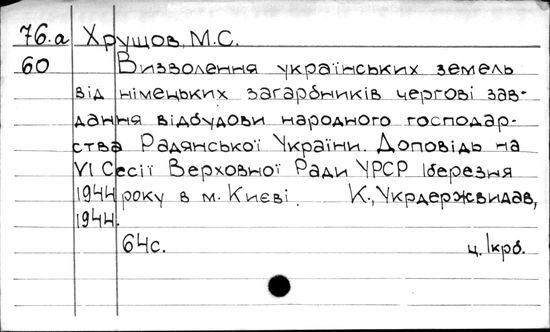 76.а Хрущов, М.С.
60 Визволення українських земель
від німецьких загарбників чергові зав-
дання відбудови народного господар-
ства Радянської України. Доповідь на
VI Сесії Верховної Ради УРСР 1березня
1944 року в м. Києві. К., Укрдержвидав,
1944.
64с. ц. 1крб.